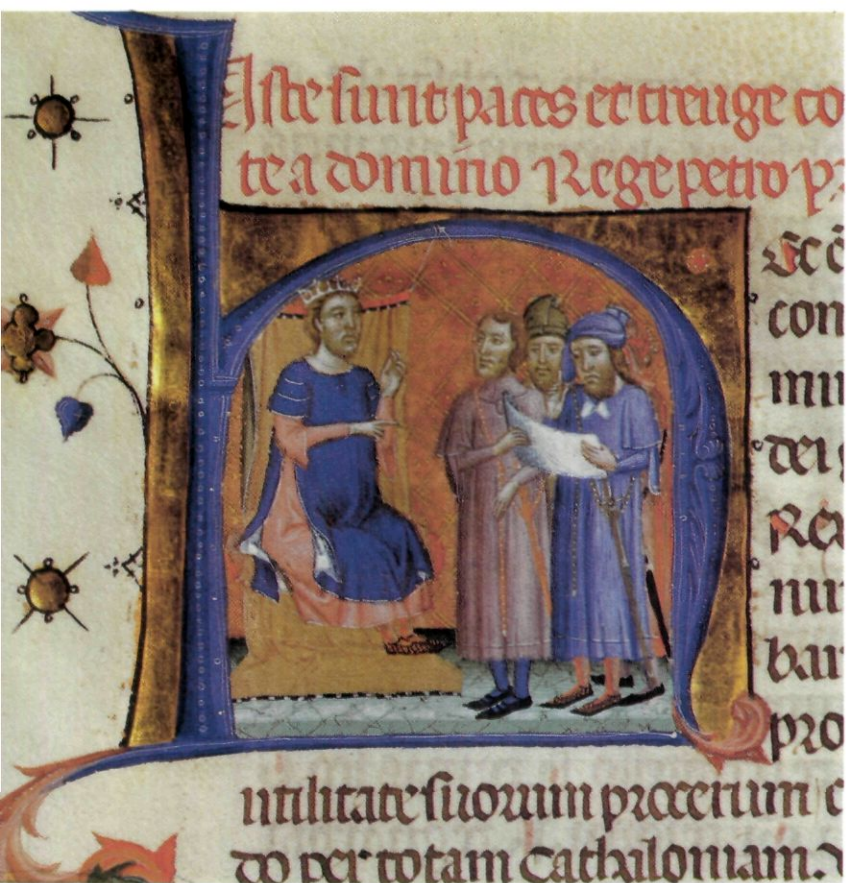 Iste sunt paces et treuge co
te a domino Rege petro p
con
dei
Rex
bar
pro
utilitate suorum procerum c
do per totam Cathaloniam.